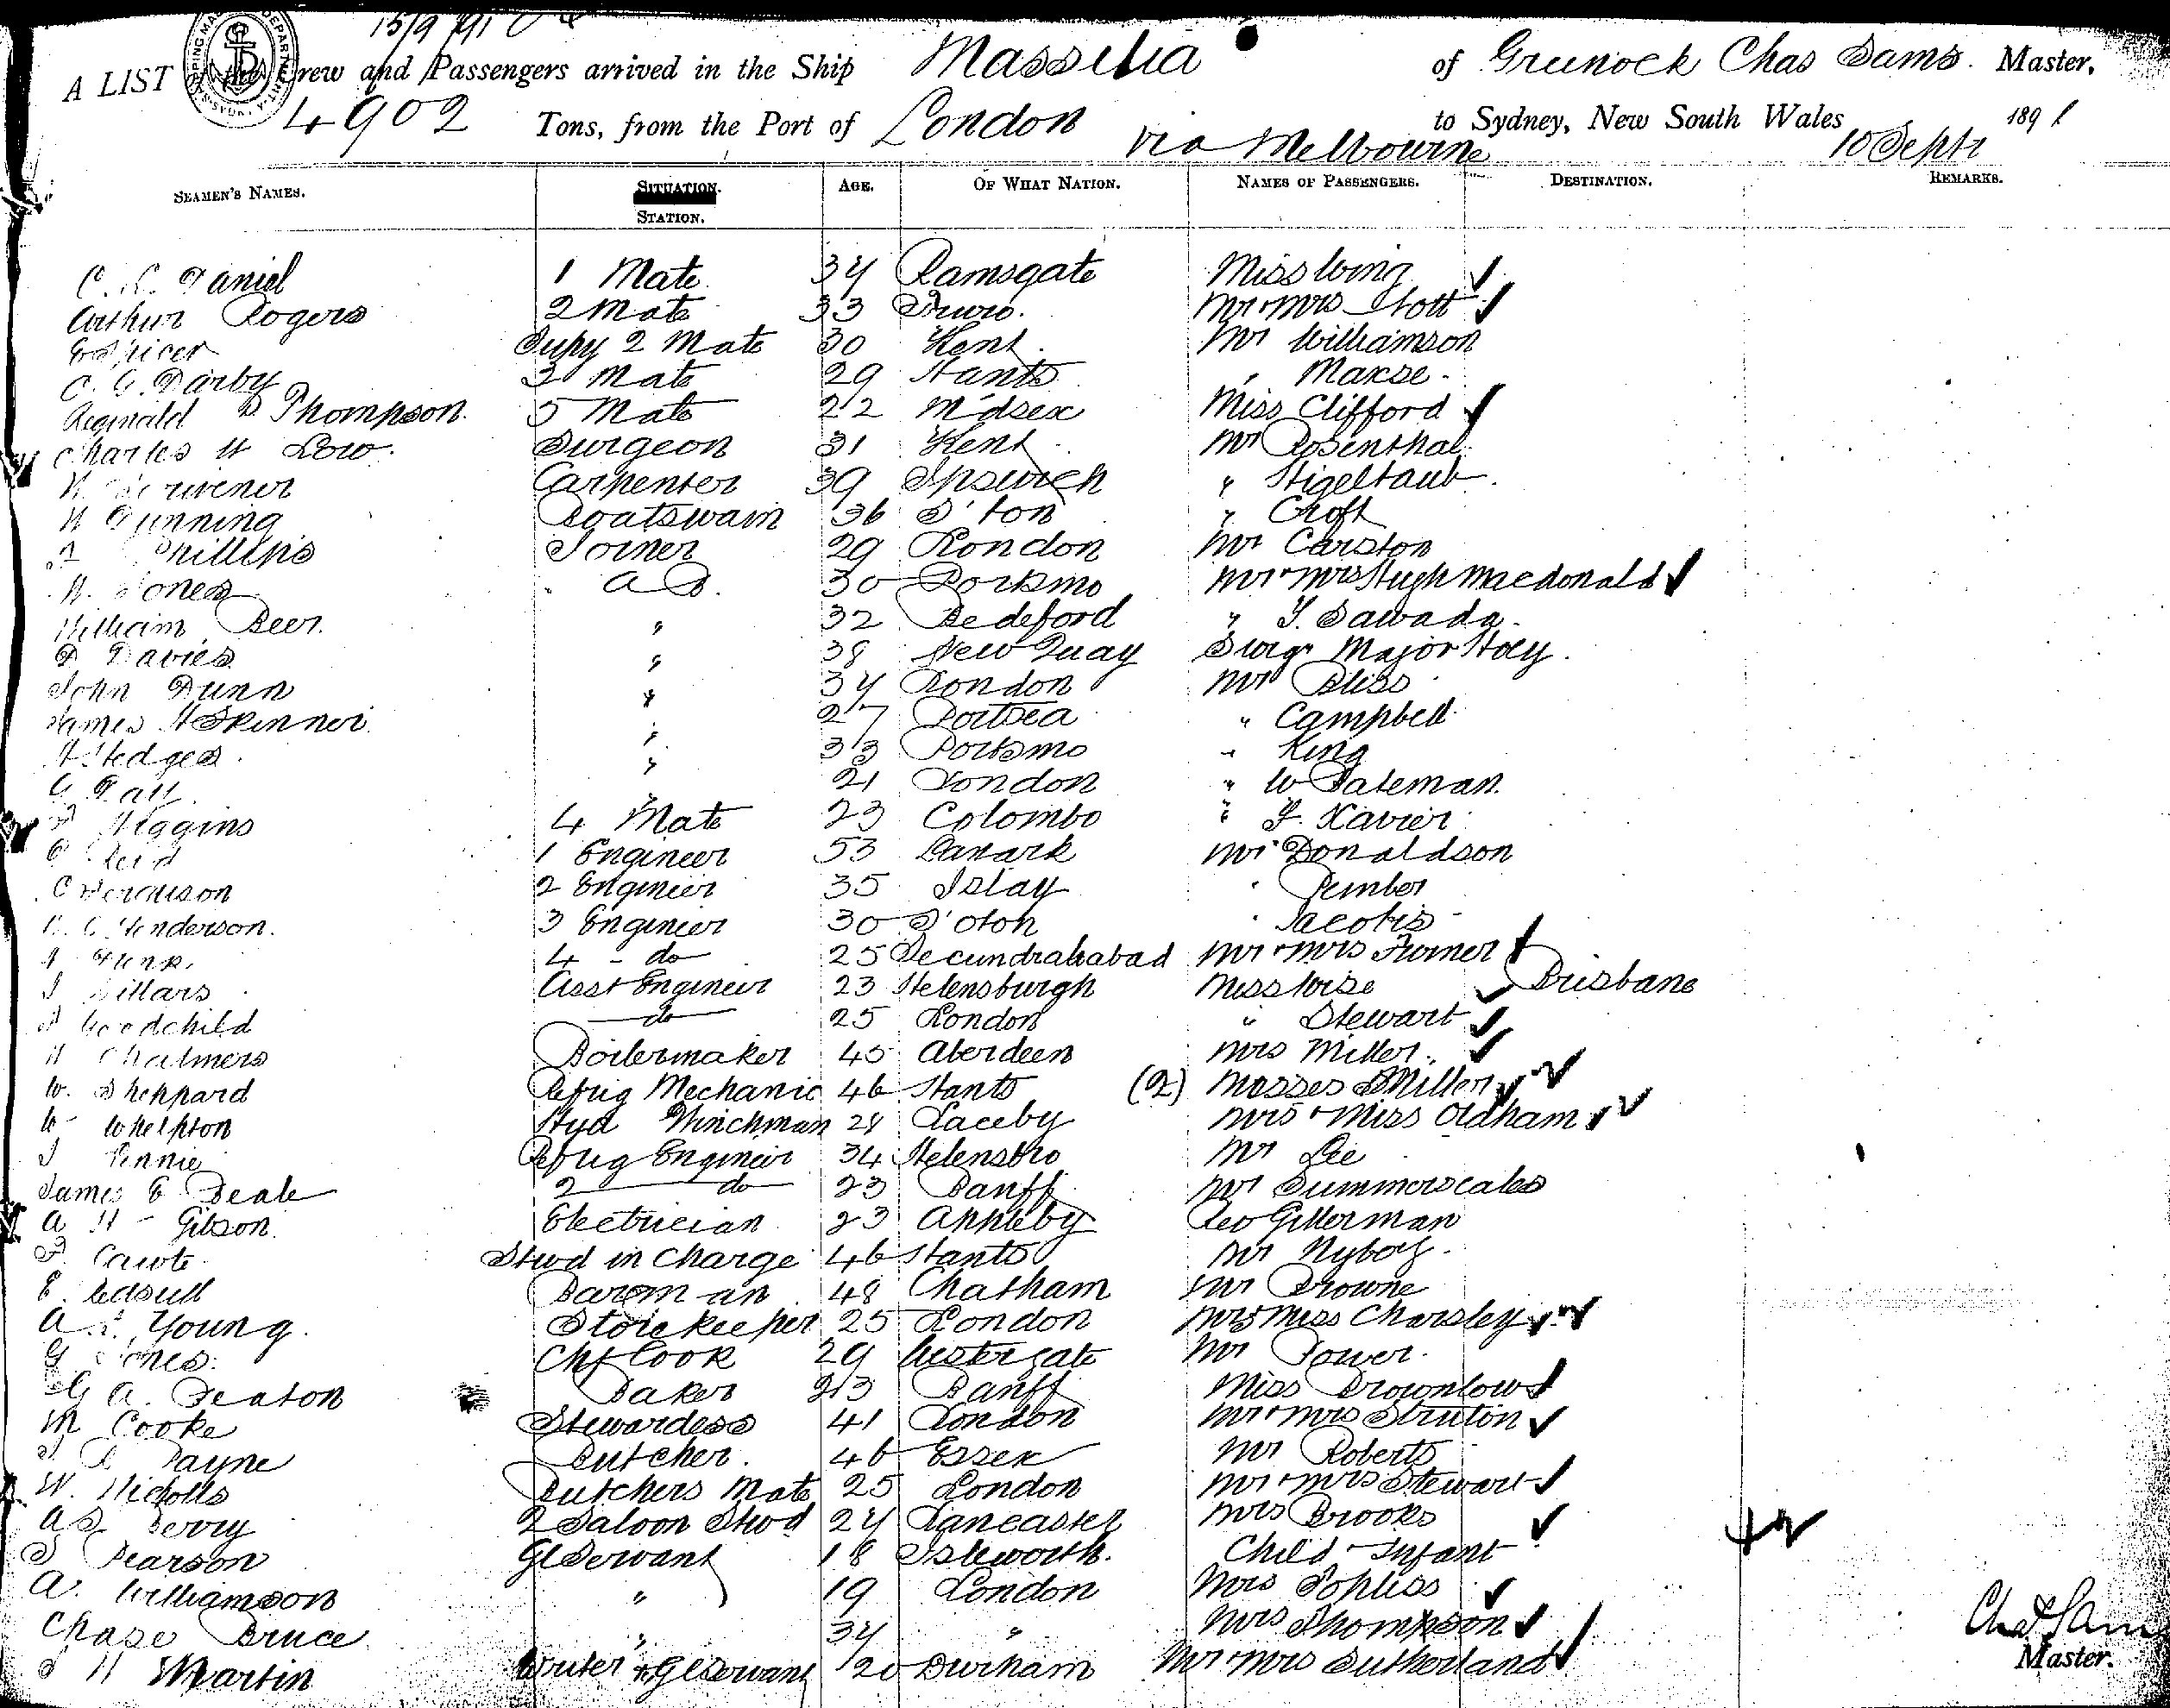 15/9/91
A LIST of the Crew and Passengers arrived in the Ship Massilia of Greenock Chas Sams. Master,
4902 Tons, from the Port of London via Melbourne to Sydney, New South Wales 10 Septr 1891
SEAMEN'S NAMES. SITUATION. STATION. AGE. OF WHAT NATION. NAMES OF PASSENGERS. DESTINATION. REMARKS.
Daniel 1 Mate 34 Ramsgate Miss Wing
Arthur Rogers 2 Mate 33 Truro. Mr & Mrs Stott
Spicer Supy 2 Mate 30 Kent. Mr Williamson
C. G. Darby 3 Mate 29 Hants " Maxse.
Reginald D Thompson. 5 Mate 22 M'dsex Miss Clifford
Charles H Low. Surgeon 31 Kent Mr Rosenthal
Scrivener Carpenter 39 Ipswich " Stigeltaub.
Gunning Boatswain 36 S'ton " Croft
Phillips Joiner 29 London Mr Carston
Jones A B. 30 Portsmo Mr & Mrs Hugh Macdonald
William Beer. " 32 Bedeford " Y. Sawada.
D Davies " 38 New Quay Surgn Major Hoey.
John Dunn " 34 London Mr Bliss
James H Skinner. " 27 Portsea " Campbell
Hedges. " 33 Portsmo " King
" 21 London " W Bateman.
Higgins 4 Mate 23 Colombo " F. Xavier
Reid 1 Engineer 53 Lanark Mr Donaldson
C Ferguson 2 Engineer 35 Islay " Pember
Henderson. 3 Engineer 30 S'oton " Jacobis
4 - do 25 Secundrahabad Mr & Mrs Turner
Asst Engineer 23 Helensburgh Miss Wise Brisbane
Goodchild do 25 London " Stewart
Chalmers Boilermaker 45 Aberdeen Mrs Miller.
W. Sheppard Refrig Mechanic 46 Hants (2) Misses Miller
W Whelpton Hyd Winchman 28 Laceby Mrs & Miss Oldham
J Rennie Refrig Engineer 34 Helensbro Mr Lee
James 2 do 23 Banff Mr Summerscales
A H Gibson. Electrician 23 Appleby Geo Gillerman
Cawte Stwd in Charge 46 Hants Mr Nyborg.
E. Edsull Barman 48 Chatham Mr Browne
A. Young. Storekeeper 25 London Mrs & Miss Charsley
G Jones. Chf Cook 29 Westergate Mr Power.
G A. Seaton Baker 23 Banff Miss Brownlow
M Cooke Stewardess 41 London Mr & Mrs Strutton
Payne Butcher. 46 Essex Mr Roberts
W. Nicholls Butchers Mate 25 London Mr & Mrs Stewart
Berry 2 Saloon Stwd 24 Lancaster Mrs Brooks
Pearson Gl Servant 18 Isleworth. Child & Infant
A. Williamson " 19 London Mrs Topliss
Chase Bruce " 34 " Mrs Thompson
J H Martin Writer & Gl Servant 20 Durham Mr & Mrs Sutherland
42
Chas Sams
Master.